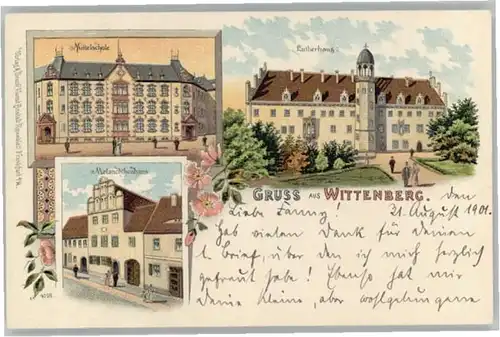 Mittelschule
Lutherhaus
Melanchthonhaus
GRUSS AUS WITTENBERG. den
21. August 1901.
Liebe Fanny!
Hab vielen Dank für deinen
l. Brief, über den ich mich herzlich
gefreut habe! Ebenso hat mir
deine kleine, aber wohlgelungene